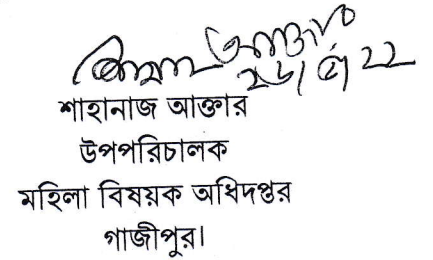 ২৬/৫/২২
শাহানাজ আক্তার
উপপরিচালক
মহিলা বিষয়ক অধিদপ্তর
গাজীপুর।